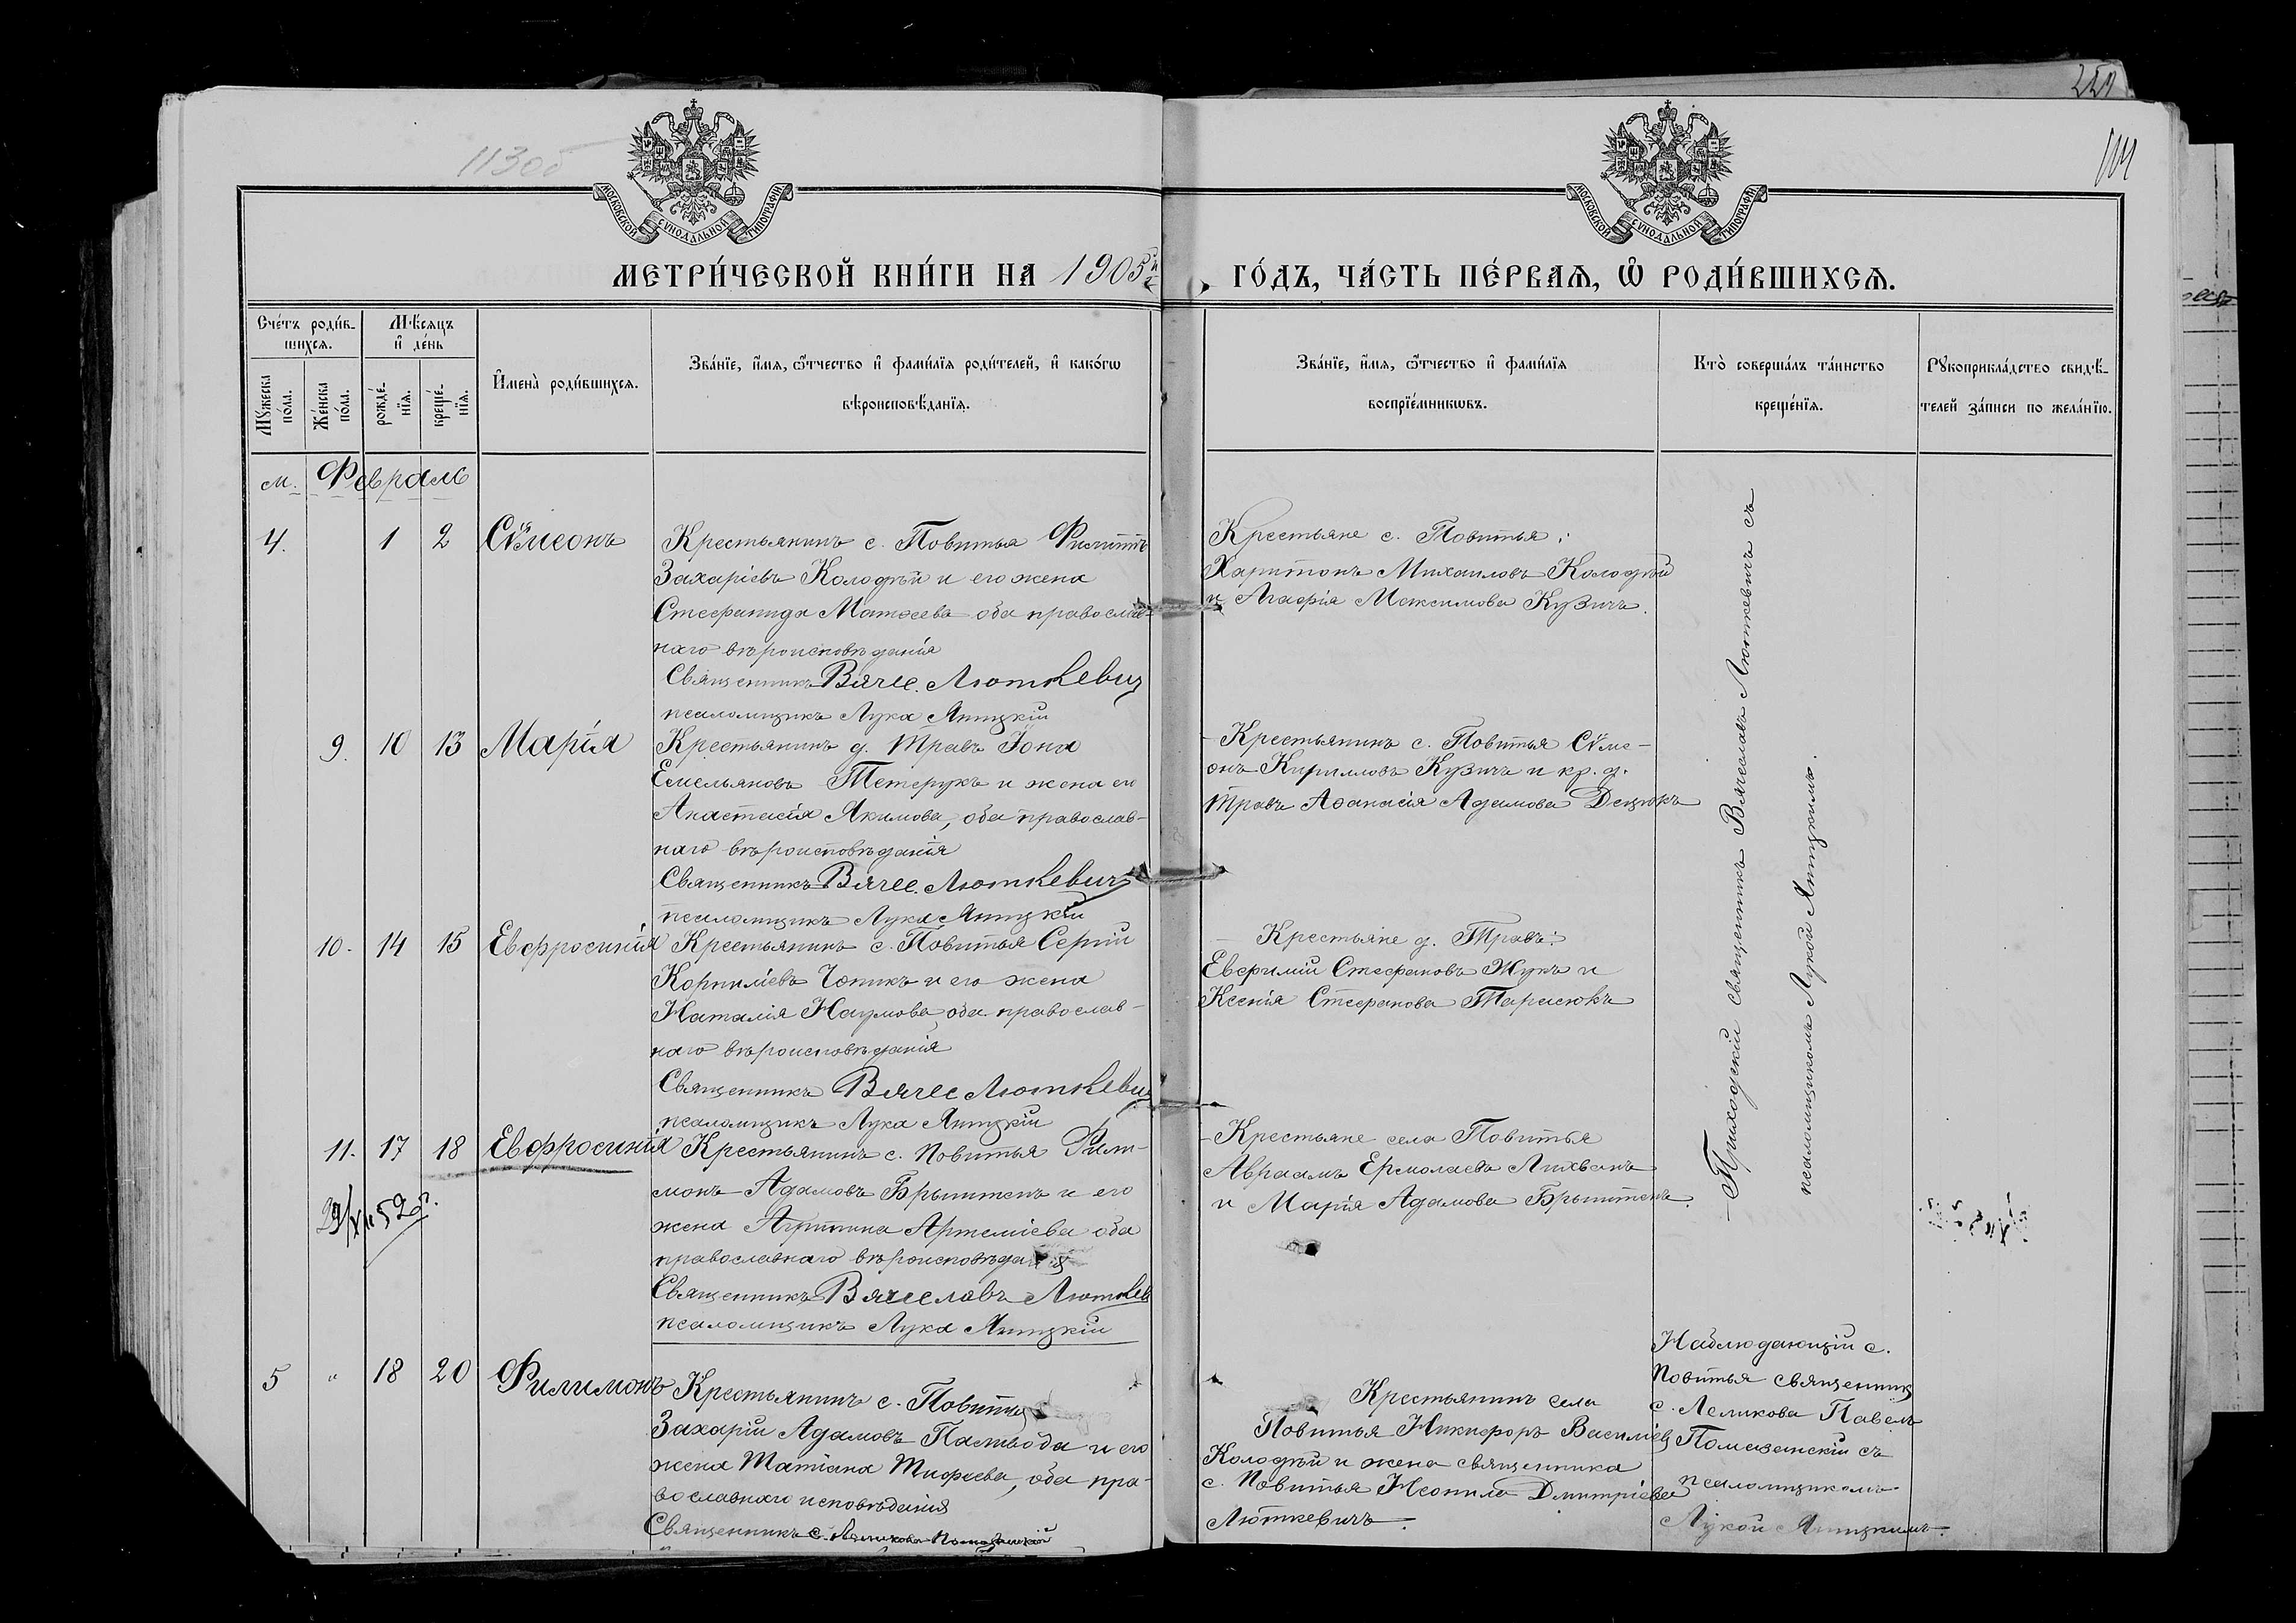 251
104
113об
МОСКОВСКОЙ СѴНОДАЛЬНОЙ ТИПОГРАФІИ
МОСКОВСКОЙ СѴНОДАЛЬНОЙ ТИПОГРАФІИ
МЕТРИ́ЧЕСКОЙ КНИ́ГИ НА 1905й
ГО́ДЪ, ЧА́СТЬ ПЕ́РВАѦ, Ѡ РОДИ́ВШИХСѦ.
Сче́тъ роди́в-
шихсѧ.
Мѣ́сѧцъ
и҆ де́нь
Мꙋ́жеска
по́ла.
Же́нска
по́ла.
рожде́-
нїѧ.
креще́-
нїѧ.
И҆мена̀ роди́вшихсѧ.
Зва́нїе, и҆́мѧ, ѻ҆́тчество и҆ фами́лїѧ роди́телей, и҆ како́гѡ
вѣроисповѣ́данїѧ.
Зва́нїе, и҆́мѧ, ѻ҆́тчество и҆ фами́лїѧ
воспрїе́мникѡвъ.
Кто̀ соверша́лъ та́инство
креще́нїѧ.
Рꙋкоприкла́дство свидѣ́-
телей за́писи по жела́нїю.
м. Февраль
4. 1 2 Сѵмеонъ
Крестьянинъ с. Повитья Филиппъ
Захаріевъ Колодѣй и его жена
Стефанида Матѳеева оба православ-
наго вѣроисповѣданія
Священникъ Вячес. Люткевич
псаломщикъ Лука Яницкій
Крестьяне с. Повитья:
Харитонъ Михаиловъ Колодѣй
и Агафія Максимова Кузичъ.
9. 10 13 Марія
Крестьянинъ д. Травъ Іона
Емельяновъ Тетерукъ и жена его
Анастасія Якимова, оба православ-
наго вѣроисповѣданія
Священникъ Вячес. Люткевич
псаломщикъ Лука Яницкій
Крестьянинъ с. Повитья Сѵме-
онъ Кирилловъ Кузичъ и кр. д.
Травъ Аѳанасія Адамова Децюкъ
10. 14 15 Евфросинія
Крестьянинъ с. Повитья Сергій
Корниліевъ Чопикъ и его жена
Наталія Наумова, оба православ-
наго вѣроисповѣданія
Священникъ Вячес Люткевич
псаломщикъ Лука Яницкій
Крестьяне д. Травъ:
Евфимій Стефановъ Жукъ и
Ксенія Стефанова Тарасюкъ
11. 17 18 Евфросинія
Крестьянинъ с. Повитья Фили-
монъ Адамовъ Брынтенъ и его
жена Агрипина Артеміева оба
православнаго вѣроисповѣданія
Священникъ Вячеславъ Люткев
псаломщикъ Лука Яницкій
Крестьяне села Повитья
Авраамъ Ермолаевъ Лихванъ
и Марія Адамова Брынтенъ.
Приходскій священникъ Вячеславъ Люткевичъ съ
псаломщикомъ Лукой Яницкимъ.
5 " 18 20 Филимонъ
Крестьянинъ с. Повитья
Захарій Адамовъ Пальвода и его
жена Татіана Тимофеева, оба пра-
вославнаго исповѣданія
Священникъ с. Леликова Помазанскій
Крестьянинъ села
Повитья Никифоръ Василіев
Колодѣй и жена священника
с. Повитья Неонила Дмитріева
Люткевичъ.
Наблюдающій с.
Повитья священник
с. Леликова Павелъ
Помазанскій съ
псаломщикомъ
Лукой Яницкимъ.